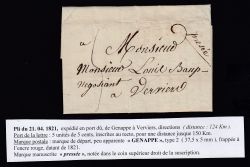 pressée
A
Monsieur
Monsieur Louis Baup
negotiant
a Verviers
Pli du 21. 04. 1821, expédié en port dû, de Genappe à Verviers, directions ( distance : 124 Km )
Port de la lettre : 5 unités de 5 cents, inscrites au recto, pour une distance jusque 150 Km.
Marque postale : marque de départ, peu apparente « GENAPPE », type 2 ( 37,5 x 5 mm ), frappée à
l'encre rouge, datant de 1821.
Marque manuscrite « pressée », notée dans le coin supérieur droit de la suscription.